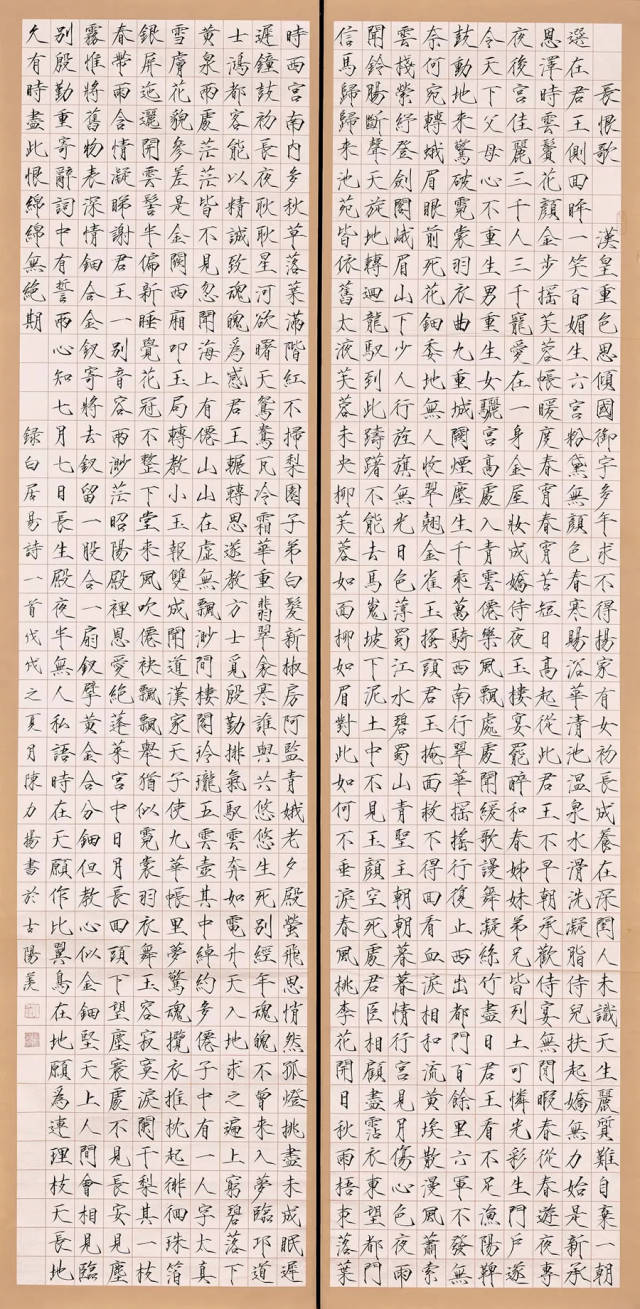 長恨歌 漢皇重色思傾國御宇多年求不得楊家有女初長成養在深閨人未識天生麗質難自棄一朝
選在君王側回眸一笑百媚生六宮粉黛無顏色春寒賜浴華清池溫泉水滑洗凝脂侍兒扶起嬌無力始是新承
恩澤時雲鬢花顏金步搖芙蓉帳暖度春宵春宵苦短日高起從此君王不早朝承歡侍宴無閒暇春從春遊夜專
夜後宮佳麗三千人三千寵愛在一身金屋妝成嬌侍夜玉樓宴罷醉和春姊妹弟兄皆列土可憐光彩生門戶遂
令天下父母心不重生男重生女驪宮高處入青雲僊樂風飄處處聞緩歌謾舞凝絲竹盡日君王看不足漁陽鞞
鼓動地來驚破霓裳羽衣曲九重城闕煙塵生千乘萬騎西南行翠華搖搖行復止西出都門百餘里六軍不發無
奈何宛轉蛾眉眼前死花鈿委地無人收翠翹金雀玉搔頭君王掩面救不得回看血淚相和流黃埃散漫風蕭索
雲棧縈紆登劍閣峨眉山下少人行旌旗無光日色薄蜀江水碧蜀山青聖主朝朝暮暮情行宮見月傷心色夜雨
聞鈴腸斷聲天旋地轉迴龍馭到此躊躇不能去馬嵬坡下泥土中不見玉顏空死處君臣相顧盡霑衣東望都門
信馬歸歸來池苑皆依舊太液芙蓉未央柳芙蓉如面柳如眉對此如何不垂淚春風桃李花開日秋雨梧桐落葉
時西宮南內多秋草落葉滿階紅不掃梨園子弟白髮新椒房阿監青娥老夕殿螢飛思悄然孤燈挑盡未成眠遲
遲鐘鼓初長夜耿耿星河欲曙天鴛鴦瓦冷霜華重翡翠衾寒誰與共悠悠生死別經年魂魄不曾來入夢臨邛道
士鴻都客能以精誠致魂魄為感君王輾轉思遂教方士覓殷勤排氣馭雲奔如電升天入地求之遍上窮碧落下
黃泉兩處茫茫皆不見忽聞海上有僊山山在虛無飄渺間樓閣玲瓏五雲壺其中綽約多僊子中有一人字太真
雪膚花貌參差是金闕西廂叩玉扃轉教小玉報雙成聞道漢家天子使九華帳里夢驚魂攬衣推枕起徘徊珠箔
銀屏迤邐開雲髻半偏新睡覺花冠不整下堂來風吹僊袂飄飄舉猶似霓裳羽衣舞玉容寂寞淚闌干梨花一枝
春帶雨含情凝睇謝君王一別音容兩渺茫昭陽殿裡恩愛絕蓬萊宮中日月長回頭下望塵寰處不見長安見塵
霧惟將舊物表深情鈿合金釵寄將去釵留一股合一扇釵擘黃金合分鈿但教心似金鈿堅天上人間會相見臨
別殷勤重寄辭詞中有誓兩心知七月七日長生殿夜半無人私語時在天願作比翼鳥在地願為連理枝天長地
久有時盡此恨綿綿無絕期 錄白居易詩一首戊戌之夏月陳力揚書於古陽羨